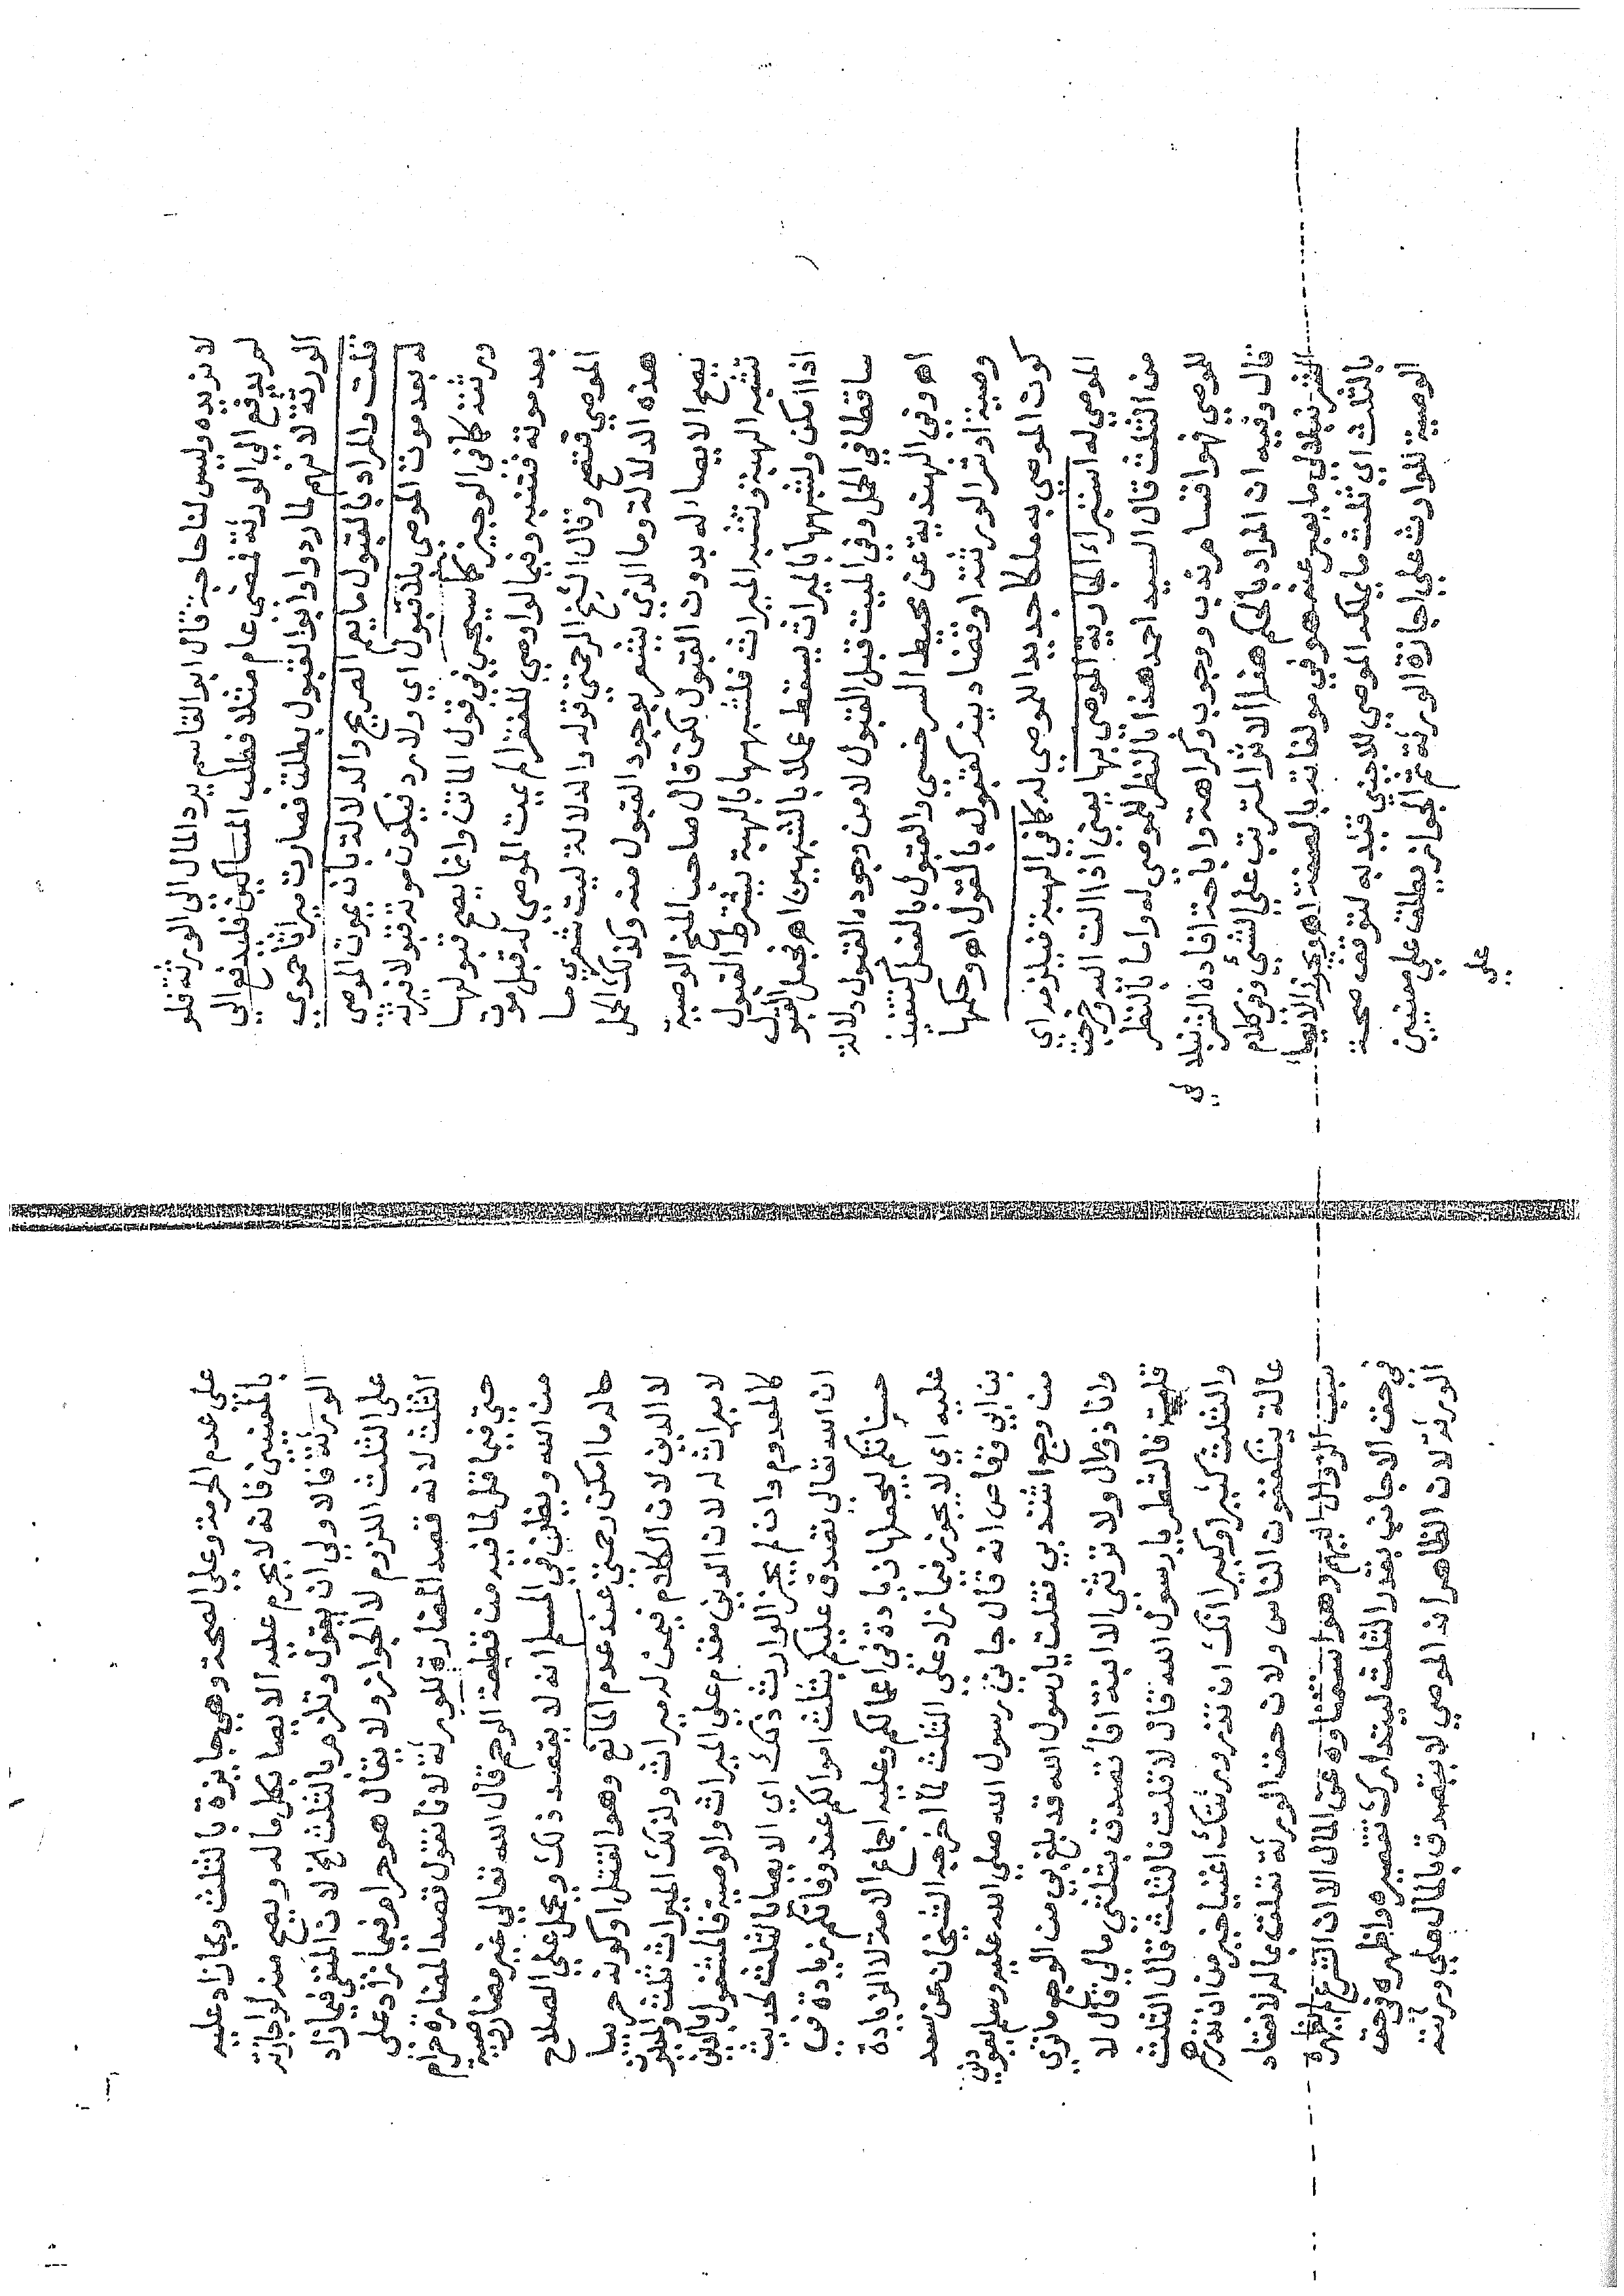 لا نريده وليس لنا حاجة قال ابو القاسم يرد المال الى الورثة فلو
لم يدفع الى الورثة فمضى عام مثلا فطلب المساكين فليدفع الى
الورثة لانهم لما ردوا وابوا القبول بطلت فصارت ميراثا حموي
قلت والمراد بالقبول ما يعم الصريح والدلالة بانه يموت الموصى
له بعد موت الموصى بلا قبول اي ولا رد فيكون موته قبولا فيرثه
ورثته كما في الوجيز كما سيجي في قول الماتن وانما يصح قبولها
بعد موته فتنبه وفيما لو اوصى للفقرا لم يمت الموصى له قبل موت
الموصي فتصح وقال الشيخ الرحمتي قوله والدلالة ليت شعري ما
هذه الدلالة وما الذي يشعر بوجود القبول منه وكذلك الحمل
يصح الايصاء له بدون القبول لكن قال صاحب المنح الوصية
تشبه الهبة وتشبه الميراث فلشبهها بالهبة يشترط القبول
اذا امكن ولشبهها بالميراث يسقط عملا بالشبهين اهـ فجعل القبول
ساقطا في الحمل وفي الميت قبل القبول لا من وجوده القبول دلالة
اهـ وفي الهندية عن محيط السرخسي والقبول بالفعل كتنفيذ
وصية او شرا لورثته او قضا دينه كقبوله بالقول اهـ وحكمها
كون الموصى به ملكا جديدا للموصى له كما في الهبة فيلزمه اي
الموصى له استبراء الجارية الموصى بها يعني اذا الت اليه وخرجت
من الثلث قال السيد احمد هذا بالنظر للموصى له واما بالنظر
للموصي فهو اقسام ندب ووجوب وكراهة واباحة افاده الشرنبلالي
قال وفيه ان المراد بالحكم هنا الاثر المترتب على الشيء وفي كلام
الشرنبلالي ما يعبر عنه هو في مولفاته بالصفة اهـ ويجوز الايصا
بالثلث اي ثلث ما يملكه الموصي للاجنبي قيد به لتوقف صحة
الوصية للوارث على اجازة الورثة ثم الجواز يطلق على معنيين
على
على عدم الحرمة وعلى الصحة وهي جايزة بالثلث وبما زاد عليه
بالمعنيين فانه لا يحرم عليه الايصا بكل ماله ويصح منه لو اجازته
الورثة فالاولى ان يقول وتلزم بالثلث الخ لان المنفي فيما زاد
على الثلث اللزوم لا الجواز ولا يقال هو حرام فيما زاد على
الثلث لانه قصد المضارة للورثة لانا نقول قصد المضارة حرام
حتى فيما قل لما فيه من قطيعة الرحم قال الله تعالى غير مضار وصية
من الله ويظن في المسلم انه لا يقصد ذلك ويحمل على الصلاح
حاله ما امكن رحمتي عند عدم المانع وهو القتل او كونه حربيا
لا الدين لان الكلام فيمن له ميراث ولذلك الميراث ثلث والمديون
لا ميراث له لان الدين مقدم على الميراث والوصية فالمشغول بالدين
كالمعدوم وان لم يجز الوارث ذلك اي الايصا بالثلث لحديث
ان الله تعالى تصدق عليكم بثلث اموالكم عند وفاتكم زيادة في
حسناتكم ليجعلها زيادة في اعمالكم وعليه اجماع الامة لا الزيادة
عليه اي لا يجوز فيما زاد على الثلث لما اخرجه الشيخان عن سعد
بن ابي وقاص انه قال جاني رسول الله صلى الله عليه وسلم يعودني
من وجع اشتد بي فقلت يا رسول الله قد بلغ بي من الوجع ما ترى
وانا ذو مال ولا ترثني الا ابنة افأتصدق بثلثي مالي قال لا
قلت فالشطر يا رسول الله قال لا قلت فالثلث قال الثلث
والثلث كثير او كبير انك ان تذر ورثتك اغنيا خير من ان تذرهم
عالة يتكففون الناس ولان حق الورثة تعلق بماله لانعقاد
سبب الزوال اليهم وهو استغناوه عن المال الا ان الشرع لم يظهره
في حق الاجانب بقدر الثلث ليتدارك تقصيره واظهره في حق
الورثة لان الظاهر انه الموصي لا يتصدق بالمال على ورثته